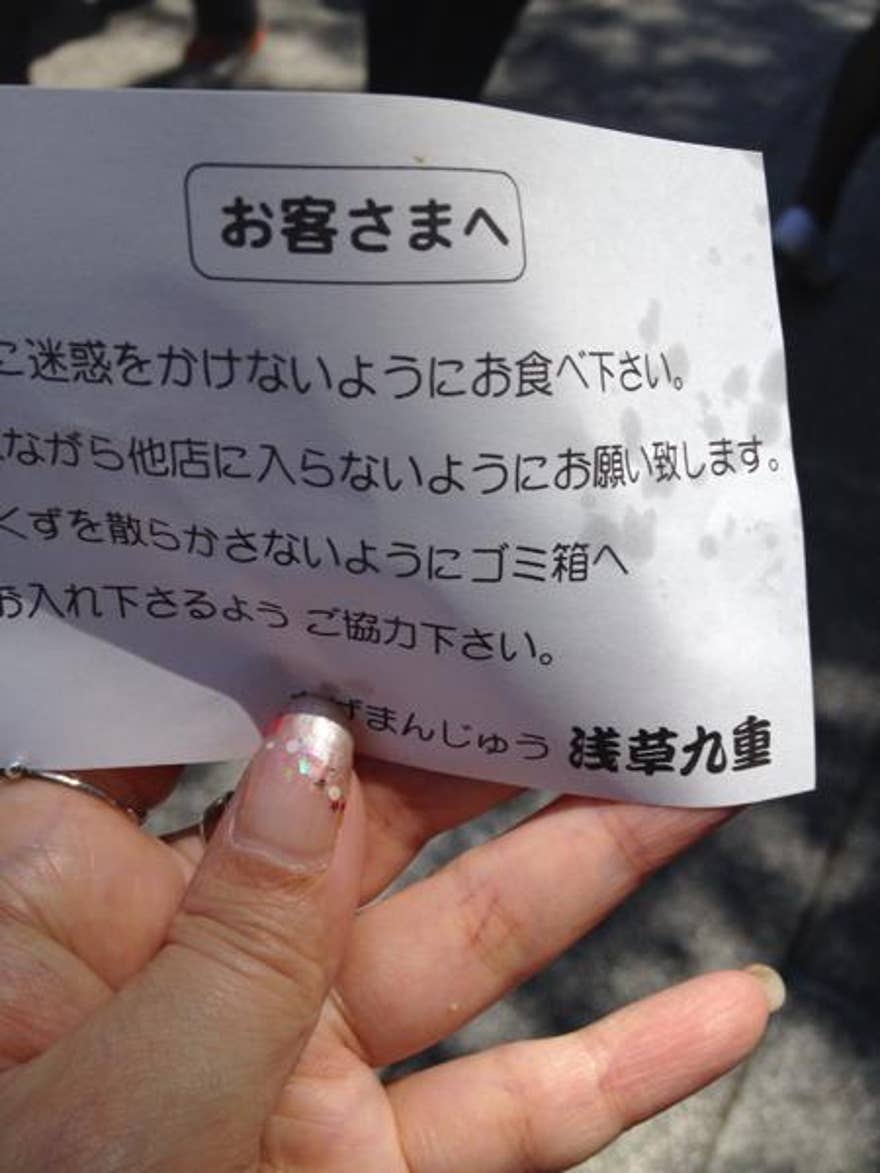 お客さまへ
迷惑をかけないようにお食べ下さい。
ながら他店に入らないようにお願い致します。
くずを散らかさないようにゴミ箱へ
お入れ下さるよう ご協力下さい。
げまんじゅう 浅草九重